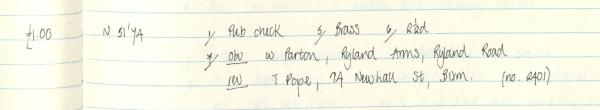 £1.00 N 51'YA 1/ Pub check 5/ Brass 6/ 2½d
7/ Obv W Parton, Ryland Arms, Ryland Road
Rev T Pope, 74 Newhall St, B'ham. (no. 2401)